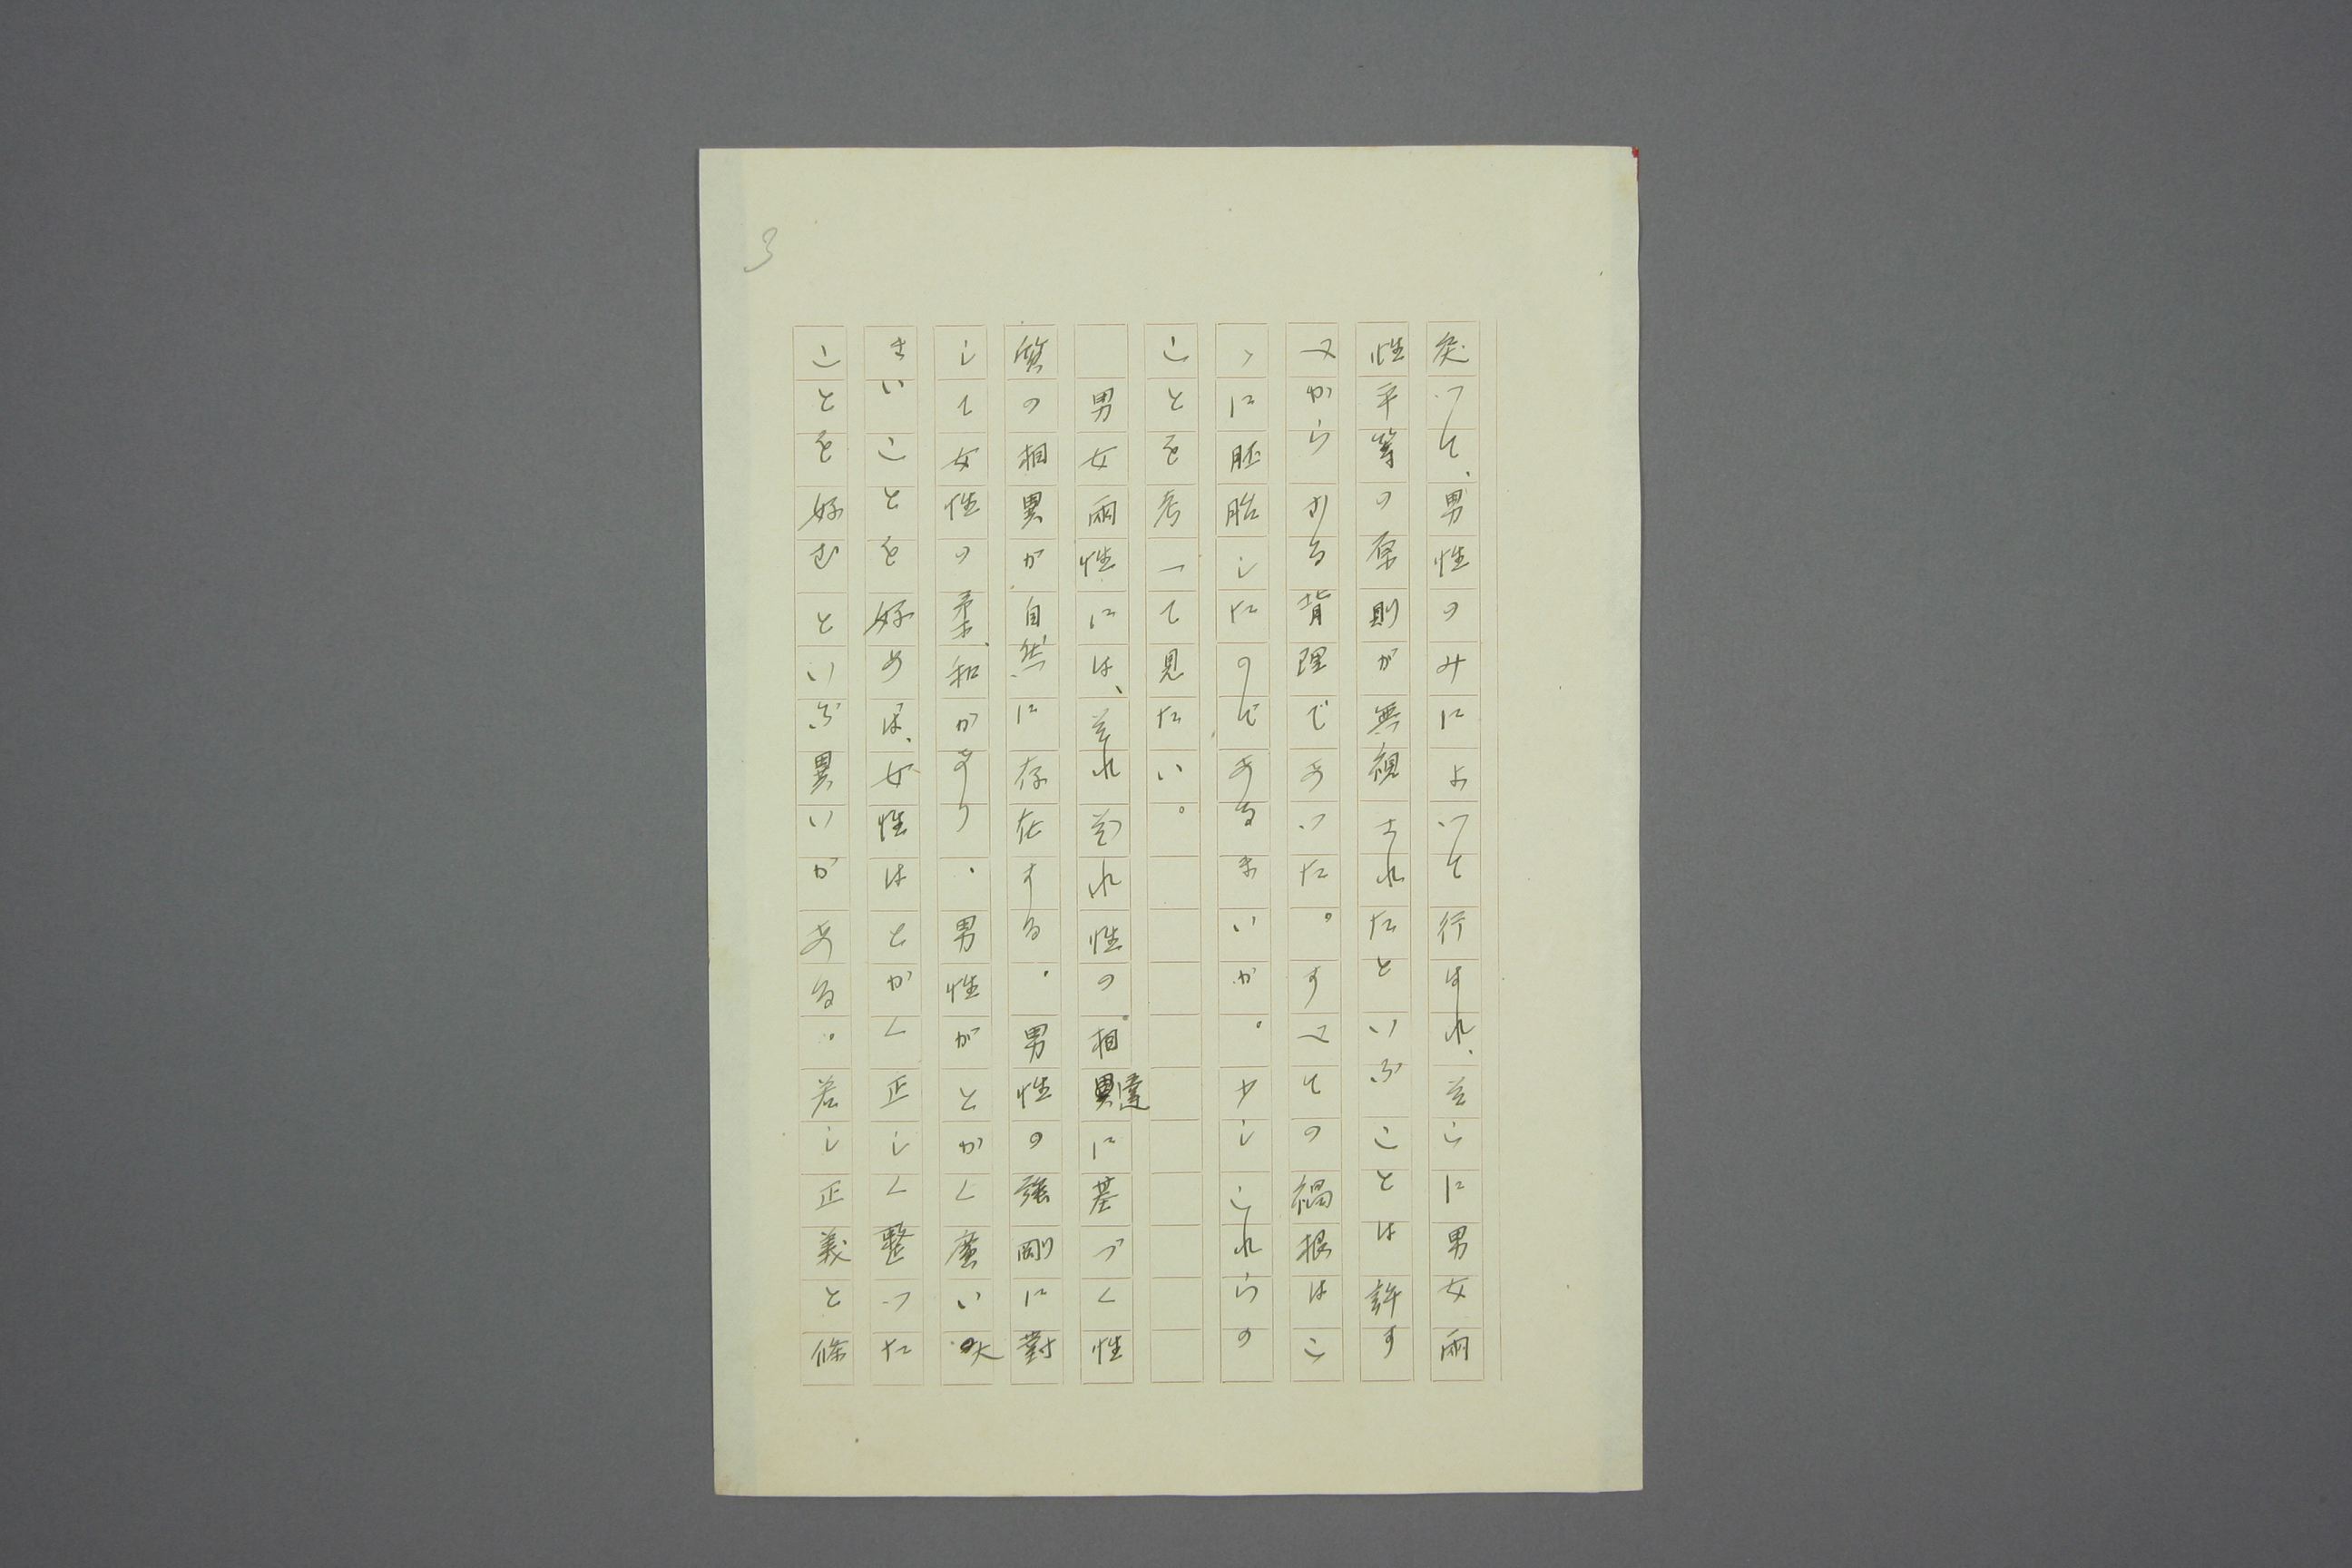 3
従つて、男性のみによつて行はれ、そこに男女兩
性平等の原則が無視されたといふことは許す
べからざる背理であつた。すべての禍根はこ
ゝに胚胎したのであるまいか。少しこれらの
ことを考へて見たい。
男女兩性には、それぞれ性の相違に基づく性
質の相異が自然に存在する。男性の強剛に對
して女性の柔和があり、男性がとかく廣い大
きいことを好めば、女性はとかく正しく整つた
ことを好むといふ異いがある。若し正義と條